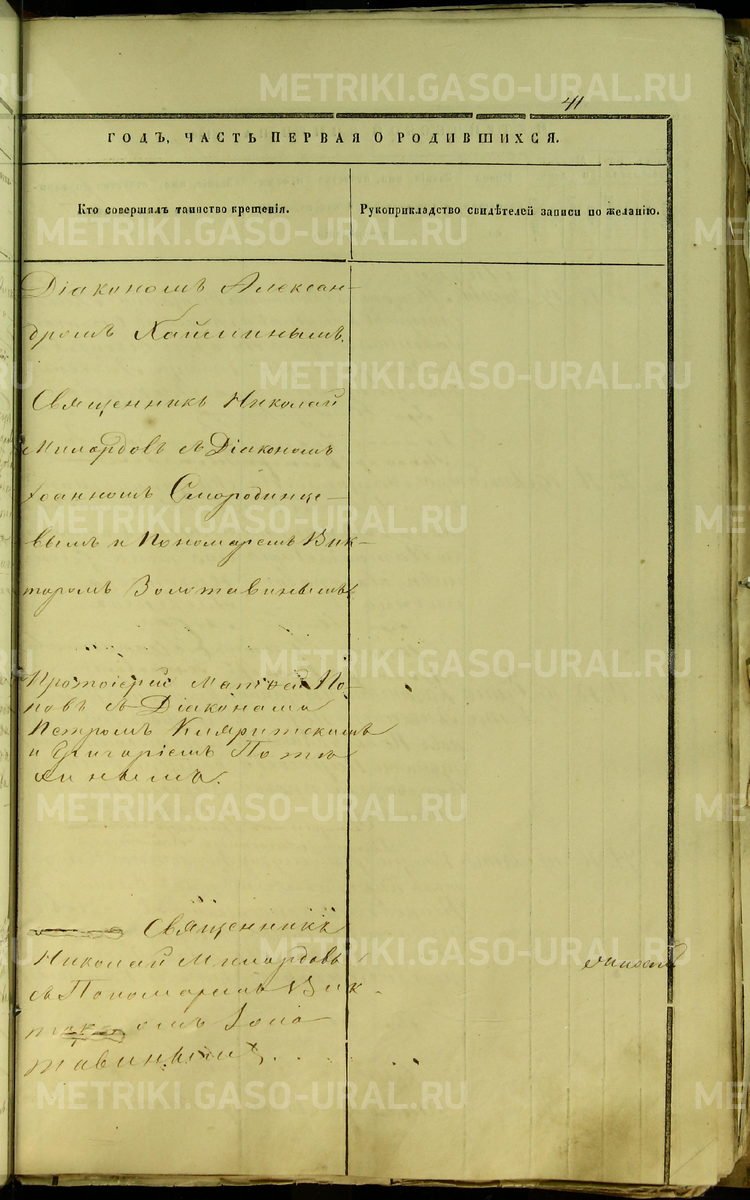 41
ГОДЪ, ЧАСТЬ ПЕРВАЯ О РОДИВШИХСЯ.
Кто совершалъ таинство крещенія.
Рукоприкладство свидѣтелей записи по желанію.
Діакономъ Алексан-
дромъ Хайминымъ.
Священникъ Николай
Милордовъ съ Діакономъ
Іоанномъ Смородинце-
вымъ и Пономаремъ Вик-
торомъ Золотавинымъ
Протоіерей Матвей По-
повъ съ Діаконами
Петромъ
и Григоріемъ Поте
хинымъ.
Священникъ
Николай Милордовъ
съ Пономаремъ Вик-
омъ Золо
тавинымъ
METRIKI.GASO-URAL.RU